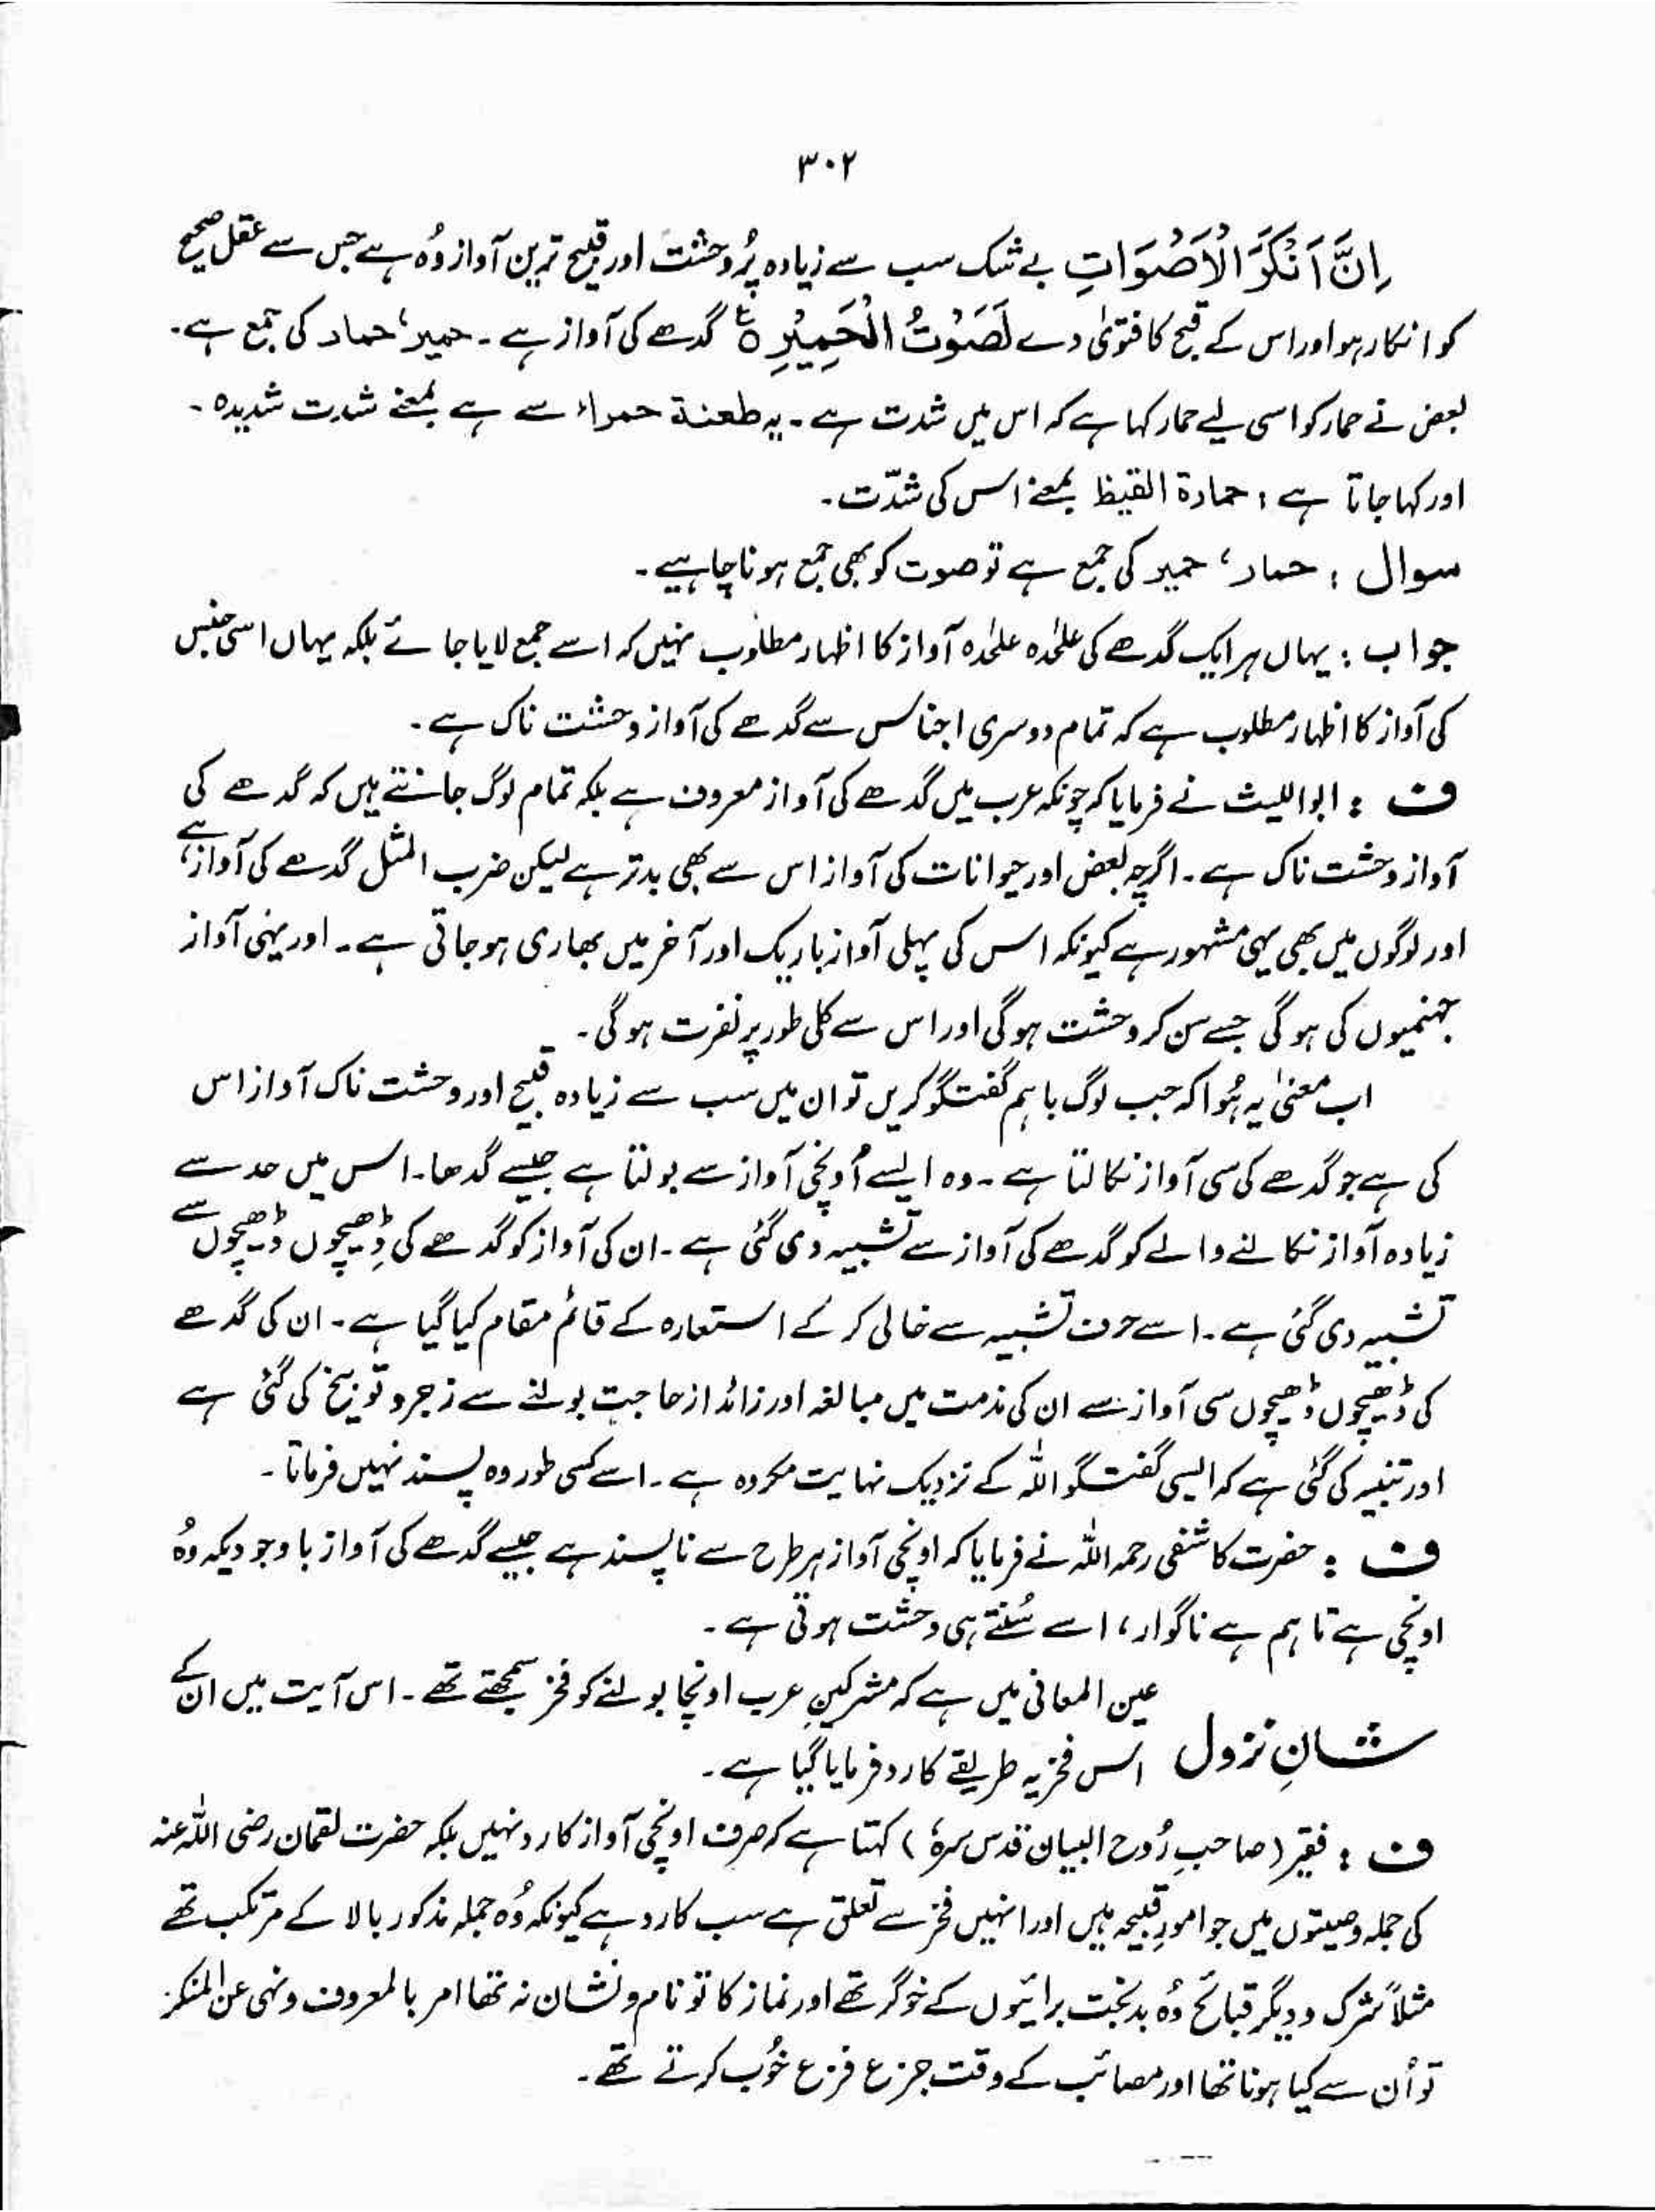 ۳۰۲
اِنَّ اَنْكَرَ الْاَصْوَاتِ بے شک سب سے زیادہ پُر وحشت اور قبیح ترین آواز وُہ ہے جس سے عقل صحیح
کو انکار ہو اور اس کے قبح کا فتویٰ دے لَصَوْتُ الْحَمِيْرِ ○ ع گدھے کی آواز ہے ۔ حمیر ، حمار کی جمع ہے ۔
بعض نے حمار کو اسی لیے حمار کہا ہے کہ اس میں شدت ہے ۔ یہ طعنۃ حمراء سے ہے بمعنے شدت شدیدہ ۔
اور کہا جاتا ہے : حمارۃ القیظ بمعنے اس کی شدّت ۔
سوال : حمار ، حمیر کی جمع ہے تو صوت کو بھی جمع ہونا چاہیے ۔
جواب : یہاں ہر ایک گدھے کی علٰحدہ علٰحدہ آواز کا اظہار مطلوب نہیں کہ اسے جمع لایا جائے بلکہ یہاں اسی جنس
کی آواز کا اظہار مطلوب ہے کہ تمام دوسری اجناس سے گدھے کی آواز وحشت ناک ہے ۔
ف : ابواللیث نے فرمایا کہ چونکہ عرب میں گدھے کی آواز معروف ہے بلکہ تمام لوگ جانتے ہیں کہ گدھے کی
آواز وحشت ناک ہے ۔ اگرچہ بعض اور حیوانات کی آواز اس سے بھی بدتر ہے لیکن ضرب المثل گدھے کی آواز ہے ،
اور لوگوں میں بھی یہی مشہور ہے کیونکہ اس کی پہلی آواز باریک اور آخر میں بھاری ہو جاتی ہے ۔ اور یہی آواز
جہنمیوں کی ہو گی جسے سن کر وحشت ہو گی اور اس سے کلی طور پر نفرت ہو گی ۔
اب معنیٰ یہ ہُوا کہ جب لوگ باہم گفتگو کریں تو ان میں سب سے زیادہ قبیح اور وحشت ناک آواز اس
کی ہے جو گدھے کی سی آواز نکالتا ہے ۔ وہ ایسے اُونچی آواز سے بولتا ہے جیسے گدھا ۔ اس میں حد سے
زیادہ آواز نکالنے والے کو گدھے کی آواز سے تشبیہ دی گئی ہے ۔ ان کی آواز کو گدھے کی ڈھیچوں ڈھیچوں سے
تشبیہ دی گئی ہے ۔ اسے حرف تشبیہ سے خالی کر کے استعارہ کے قائم مقام کیا گیا ہے ۔ ان کی گدھے
کی ڈھیچوں ڈھیچوں سی آواز سے ان کی مذمت میں مبالغہ اور زائد از حاجت بولنے سے زجر و توبیخ کی گئی ہے
اور تنبیہ کی گئی ہے کہ ایسی گفتگو اللہ کے نزدیک نہایت مکروہ ہے ۔ اسے کسی طور وہ پسند نہیں فرماتا ۔
ف : حضرت کاشفی رحمہ اللہ نے فرمایا کہ اونچی آواز ہر طرح سے ناپسند ہے جیسے گدھے کی آواز باوجودیکہ وُہ
اونچی ہے تاہم ہے ناگوار ، اسے سُنتے ہی وحشت ہوتی ہے ۔
عین المعانی میں ہے کہ مشرکینِ عرب اونچا بولنے کو فخر سمجھتے تھے ۔ اس آیت میں ان کے
شانِ نزول اس فخریہ طریقے کا رد فرمایا گیا ہے ۔
ف : فقیر ( صاحبِ رُوح البیان قدس سرہٗ ) کہتا ہے کہ صرف اونچی آواز کا رد نہیں بلکہ حضرت لقمان رضی اللہ عنہ
کی جملہ وصیتوں میں جو امورِ قبیحہ ہیں اور انہیں فخر سے تعلق ہے سب کا رد ہے کیونکہ وُہ جملہ مذکور بالا کے مرتکب تھے
مثلاً شرک و دیگر قبائح وُہ بدبخت برائیوں کے خوگر تھے اور نماز کا تو نام و نشان نہ تھا امر بالمعروف و نہی عن المنکر
تو اُن سے کیا ہونا تھا اور مصائب کے وقت جزع فزع خُوب کرتے تھے ۔